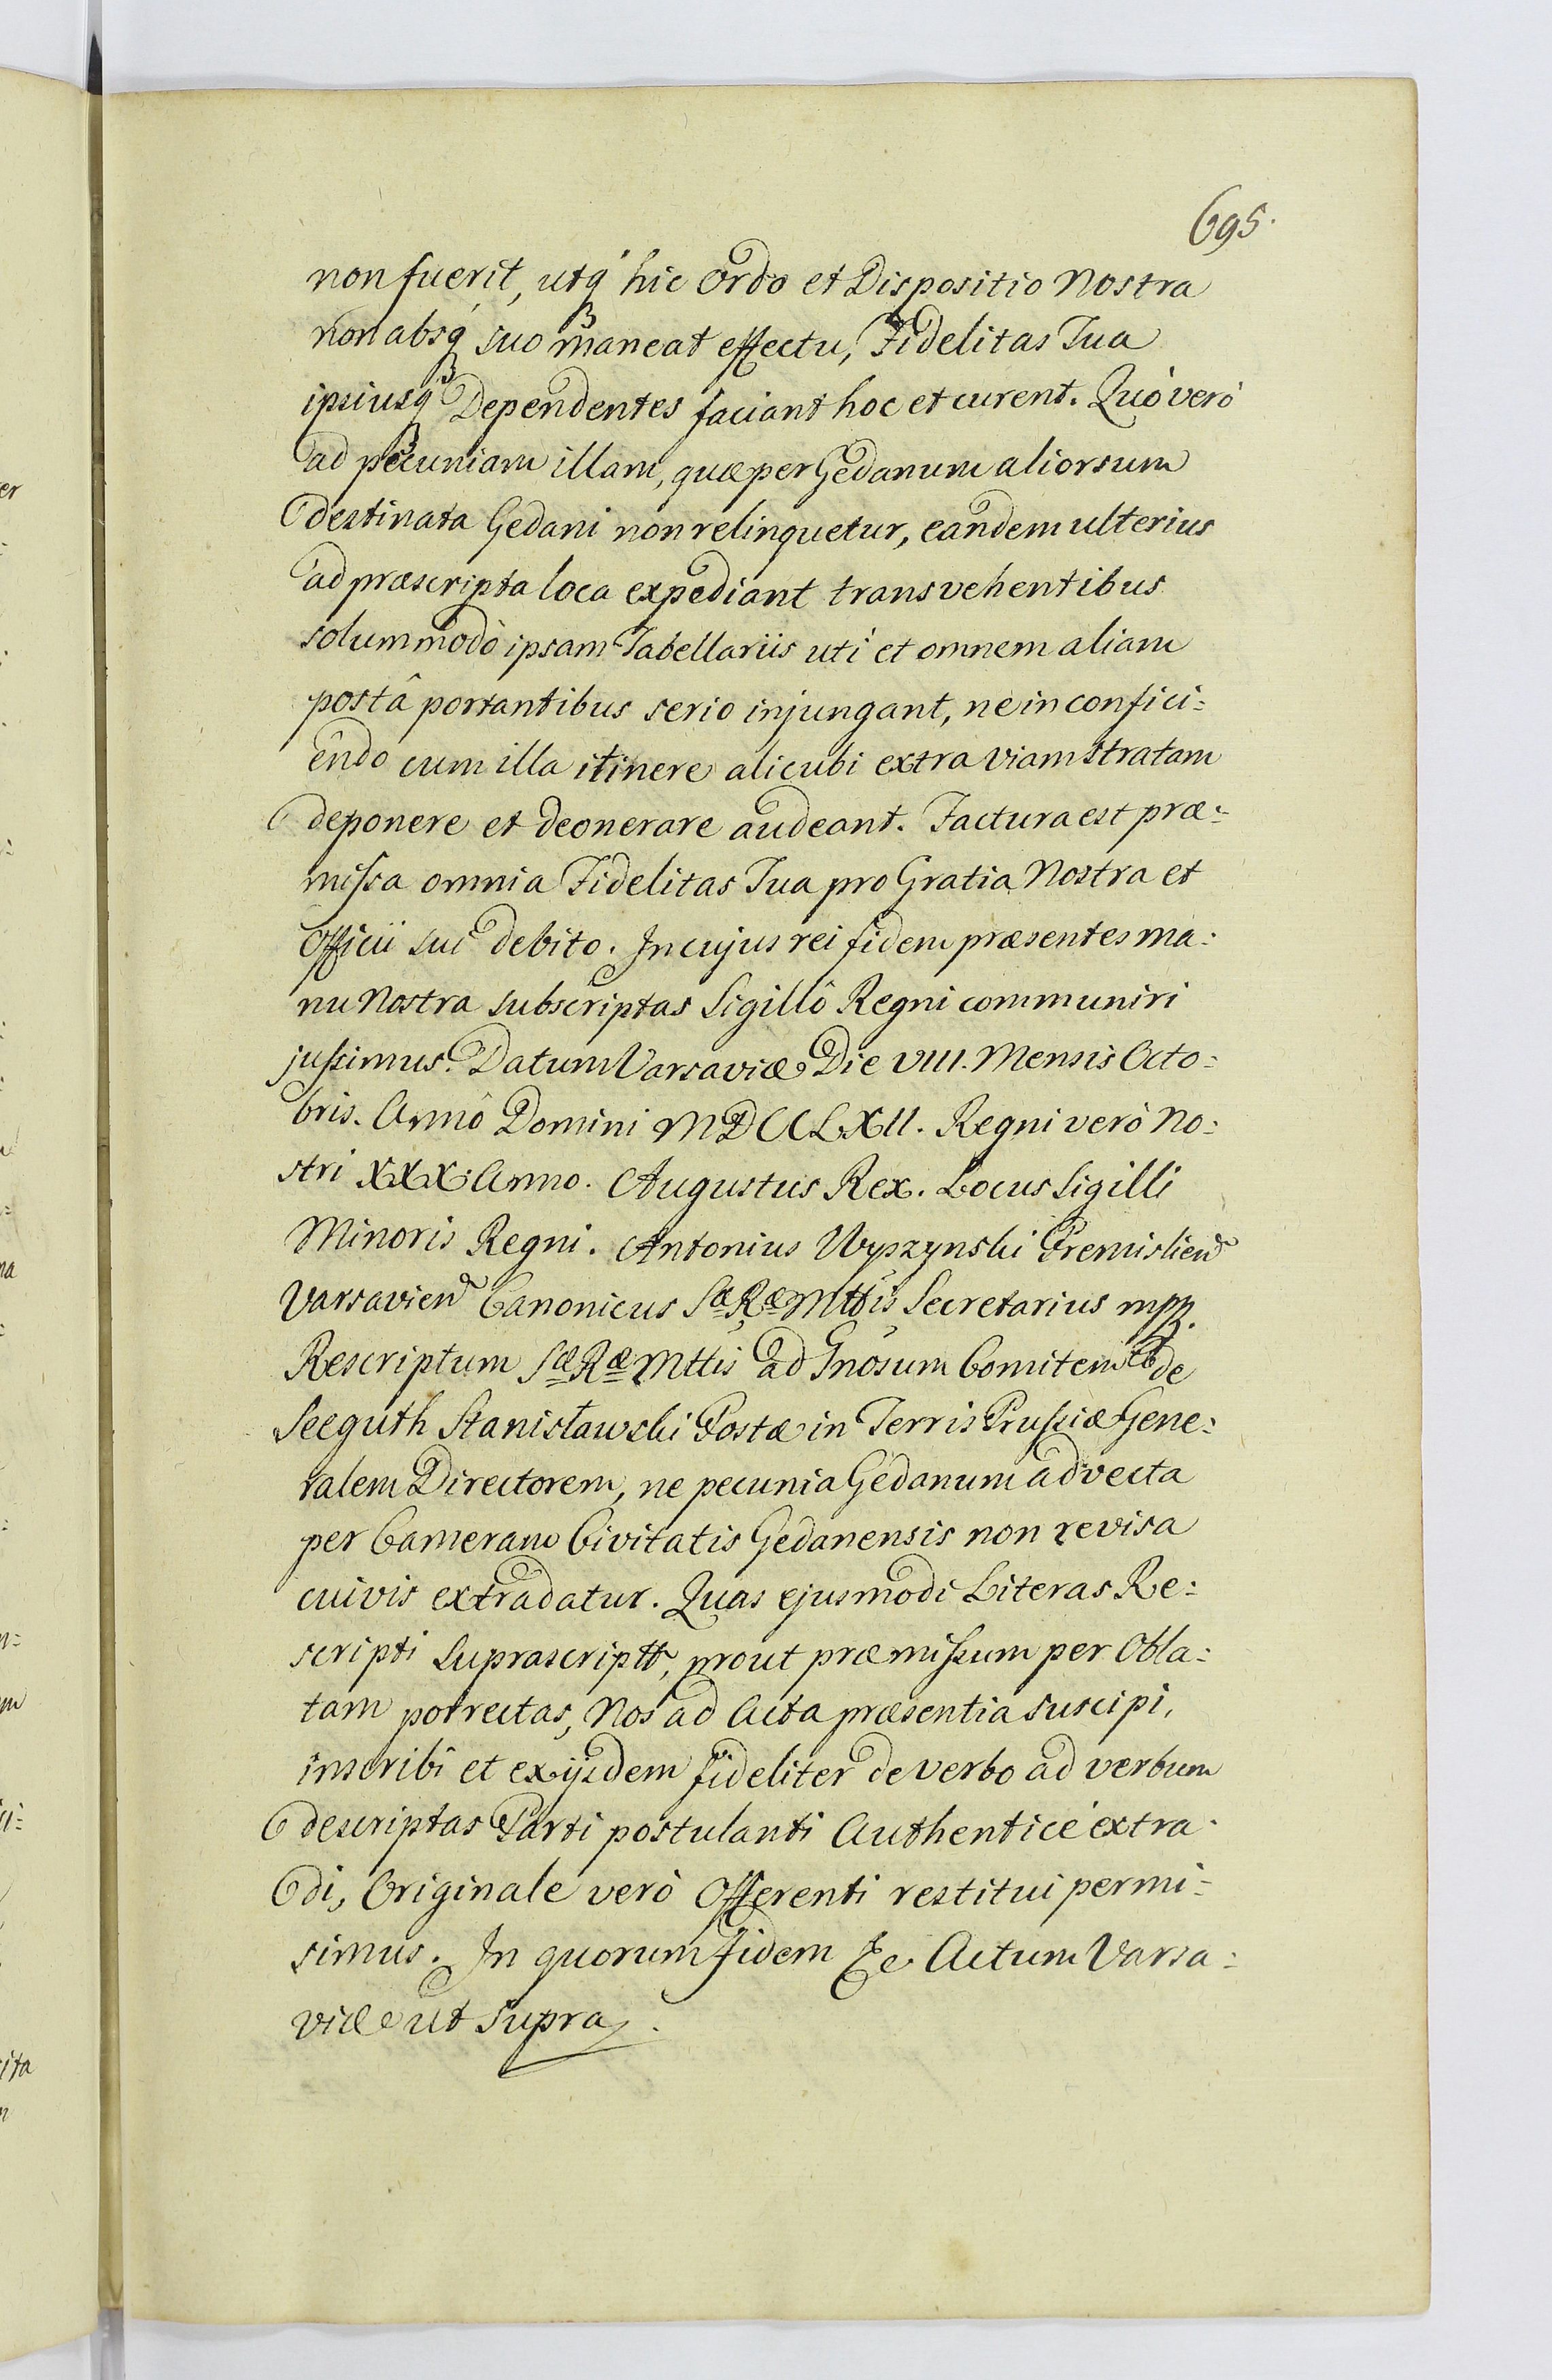 695.
non fuerit, utqꝫ hic Ordo et Dispositio Nostra
non absqꝫ suo maneat effectu, Fidelitas Tua
ipsiusqꝫ Dependentes faciant hoc et curent. Quò verò
ad pecuniam illam, quæ per Gedanum aliorsum
destinata Gedani non relinquetur, eandem ulterius
ad præscripta loca expediant transvehentibus
solummodò ipsam Tabellariis uti et omnem aliam
postâ portantibus serio injungant, ne in confici:
endo cum illa itinere alicubi extra viam stratam
deponere et deonerare audeant. Factura est præ:
missa omnia Fidelitas Tua pro Gratia Nostra et
Officii sui debito. In cujus rei fidem præsentes ma:
nu Nostra subscriptas Sigillô Regni communiri
jussimus. Datum Varsaviæ Die VIII. Mensis Octo:
bris. Annô Domini MDCCLXII. Regni verò No:
stri XXX Anno. Augustus Rex. Locus Sigilli
Minoris Regni. Antonius Wyszynski Premislien
Varsavien Canonicus Sæ Ræ Mttis Secretarius mpp.
Rescriptum Sæ Ræ Mttis ad Gnosum Comitem de
Seeguth Stanisławski Postæ in Terris Prussiæ Gene:
ralem Directorem, ne pecunia Gedanum advecta
per Cameram Civitatis Gedanensis non revisa
cuivis extradatur. Quas ejusmodi Literas Re:
scripti Suprascriptt, prout præmissum per Obla:
tam porrectas, Nos ad Acta præsentia suscipi,
inscribi et ex ijsdem fideliter de verbo ad verbum
descriptas Parti postulanti Authenticè extra:
di, Originale verò Offerenti restitui permi:
simus. In quorum fidem &c Actum Varsa:
viæ ut supra.